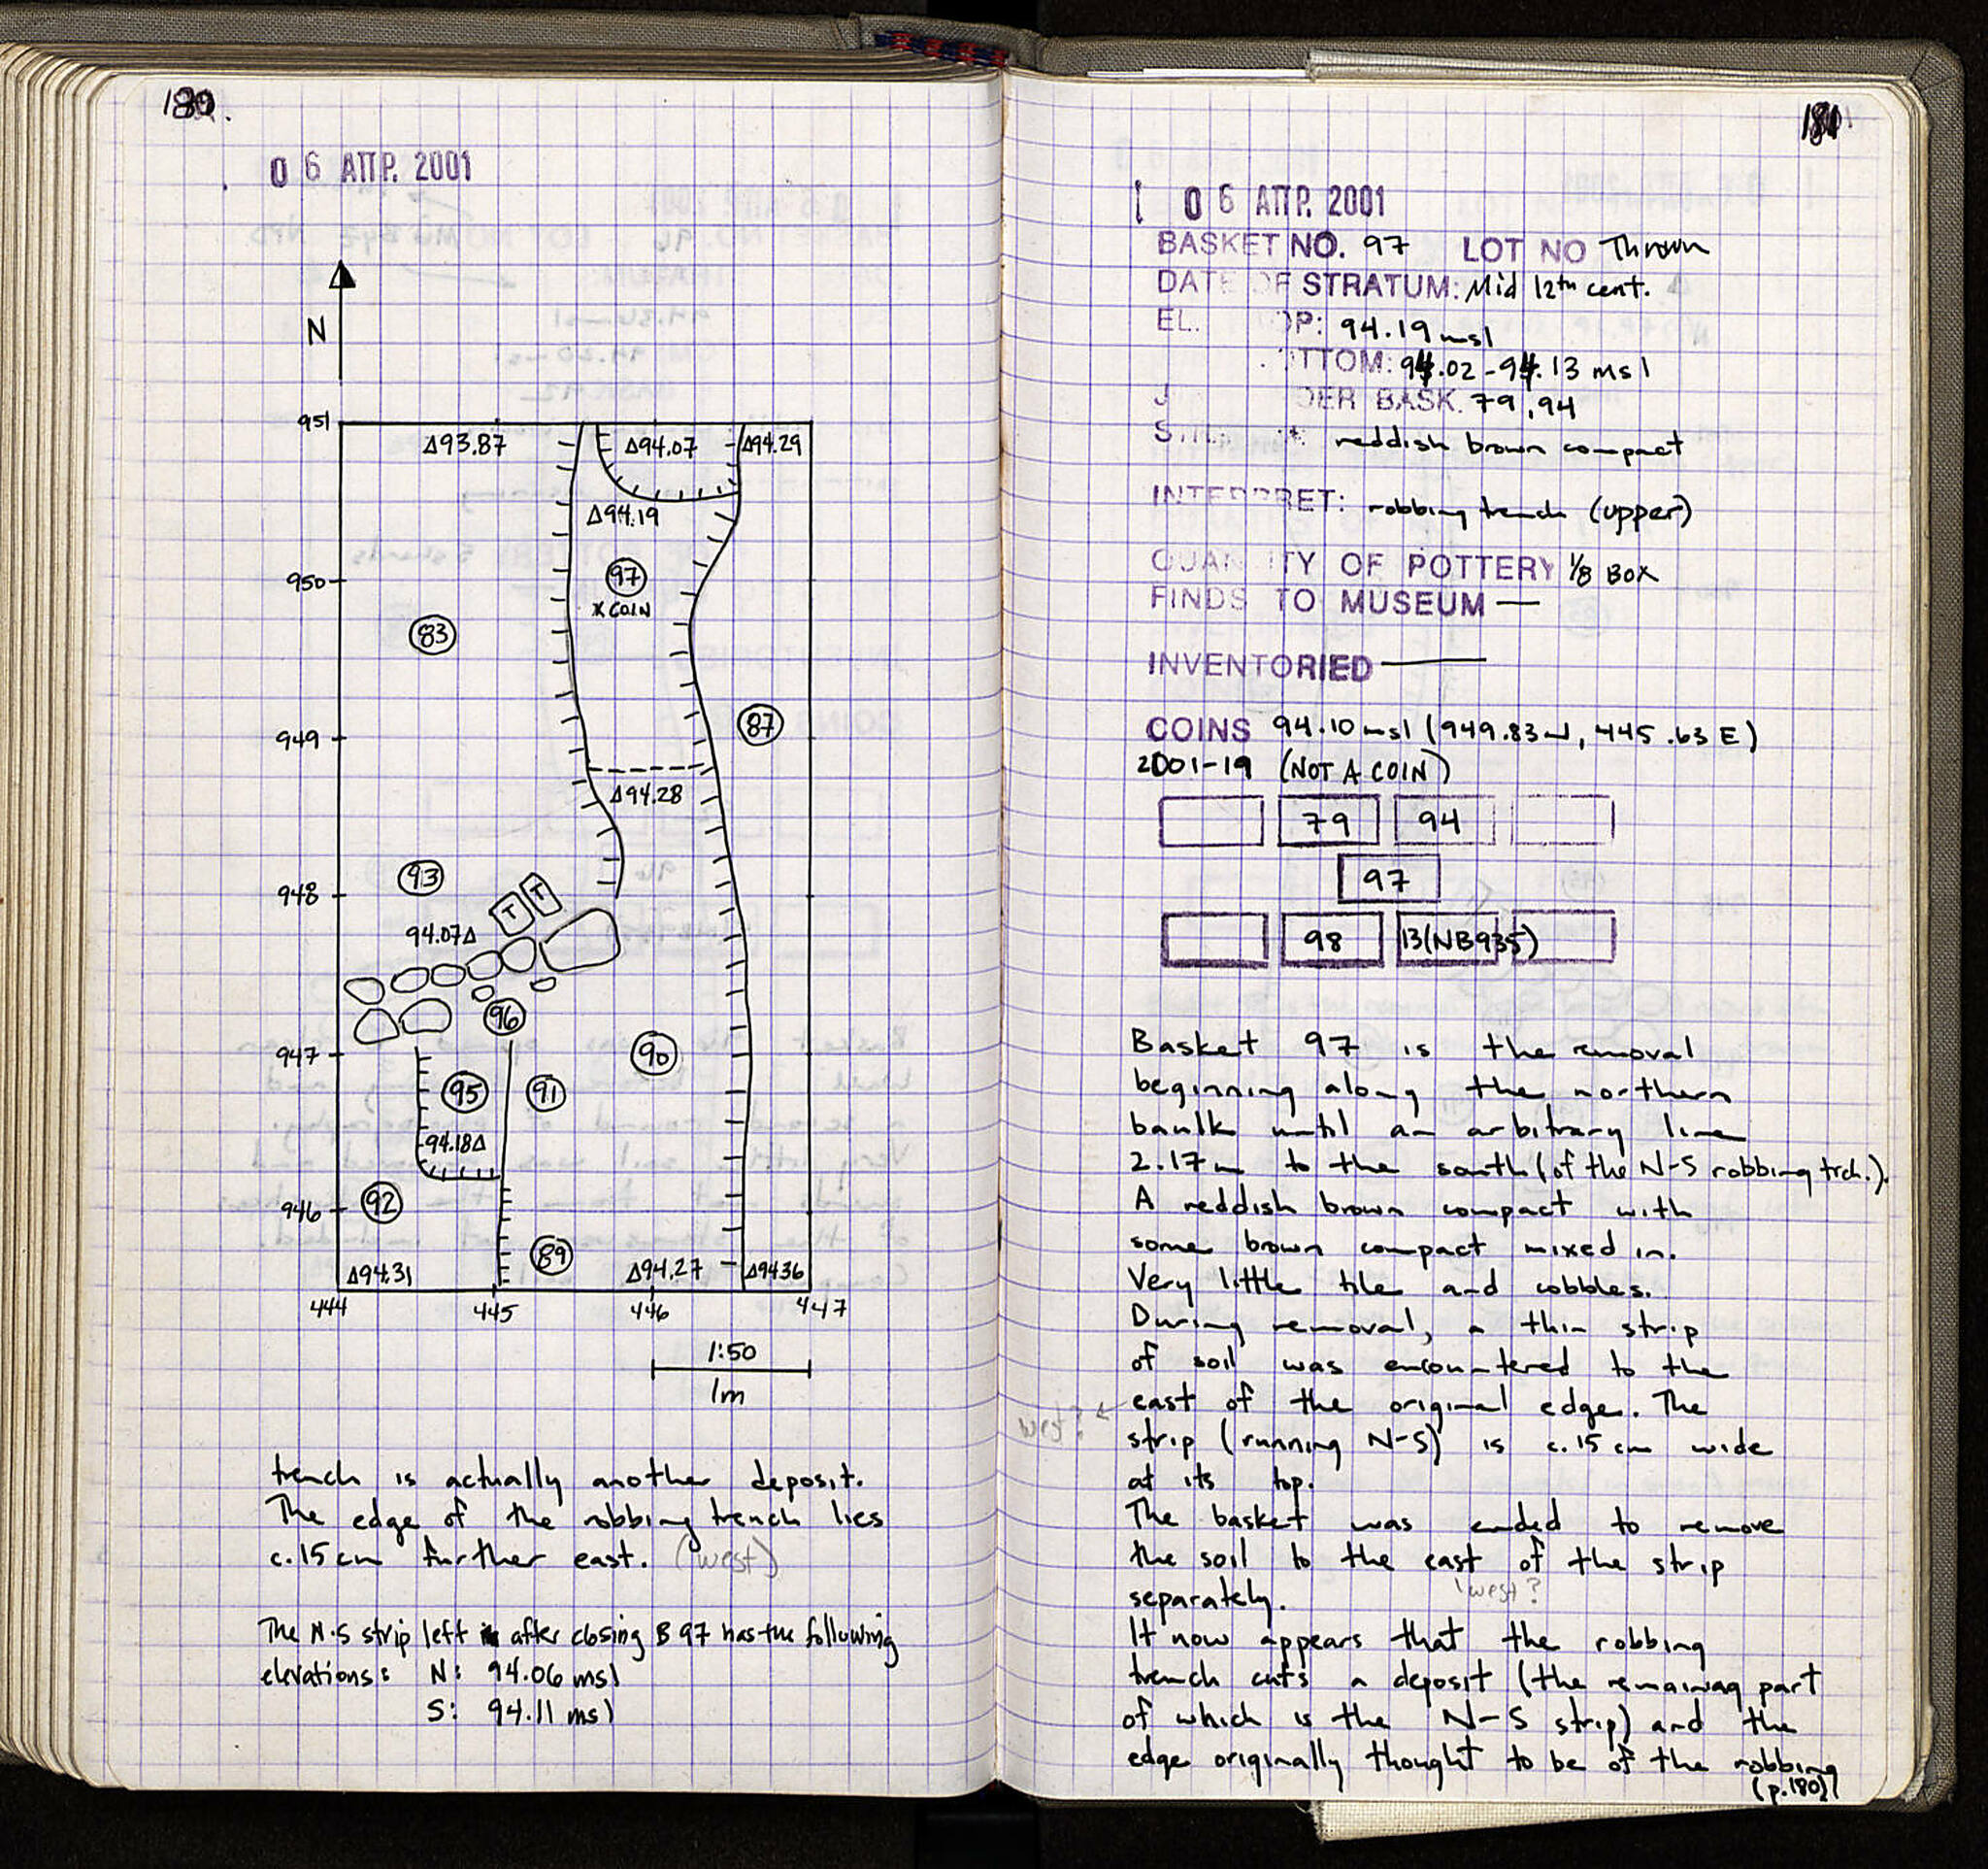 180.
06 ΑΠΡ. 2001
N
951
Δ93.87
Δ94.07
Δ94.29
Δ94.19
950
97
x COIN
83
949
87
Δ94.28
93
948
T T
94.07Δ
96
947
90
95
91
94.18Δ
92
946
89
Δ94.31
Δ94.27
Δ94.36
444 445 446 447
1:50
1m
trench is actually another deposit.
The edge of the robbing trench lies
c. 15 cm further east. (west)
The N-S strip left after closing B 97 has the following
elevations: N: 94.06 msl
S: 94.11 msl
181
06 ΑΠΡ. 2001
BASKET NO. 97 LOT NO Thrown
DATE OF STRATUM: Mid 12th cent.
EL. OP: 94.19 msl
OTTOM: 94.02 - 94.13 msl
DER BASK. 79, 94
reddish brown compact
INTERPRET: robbing trench (upper)
QUANTITY OF POTTERY 1/8 BOX
FINDS TO MUSEUM —
INVENTORIED —
COINS 94.10 msl (949.83 N, 445.63 E)
2001-19 (NOT A COIN)
79 94
97
98 13(NB935)
Basket 97 is the removal
beginning along the northern
baulk until an arbitrary line
2.17m to the south (of the N-S robbing trch.).
A reddish brown compact with
some brown compact mixed in.
Very little tile and cobbles.
During removal, a thin strip
of soil was encountered to the
west? ← east of the original edge. The
strip (running N-S) is c. 15 cm wide
at its top.
The basket was ended to remove
the soil to the east of the strip
(west?
separately.
It now appears that the robbing
trench cuts a deposit (the remaining part
of which is the N-S strip) and the
edge originally thought to be of the robbing
(p.180)